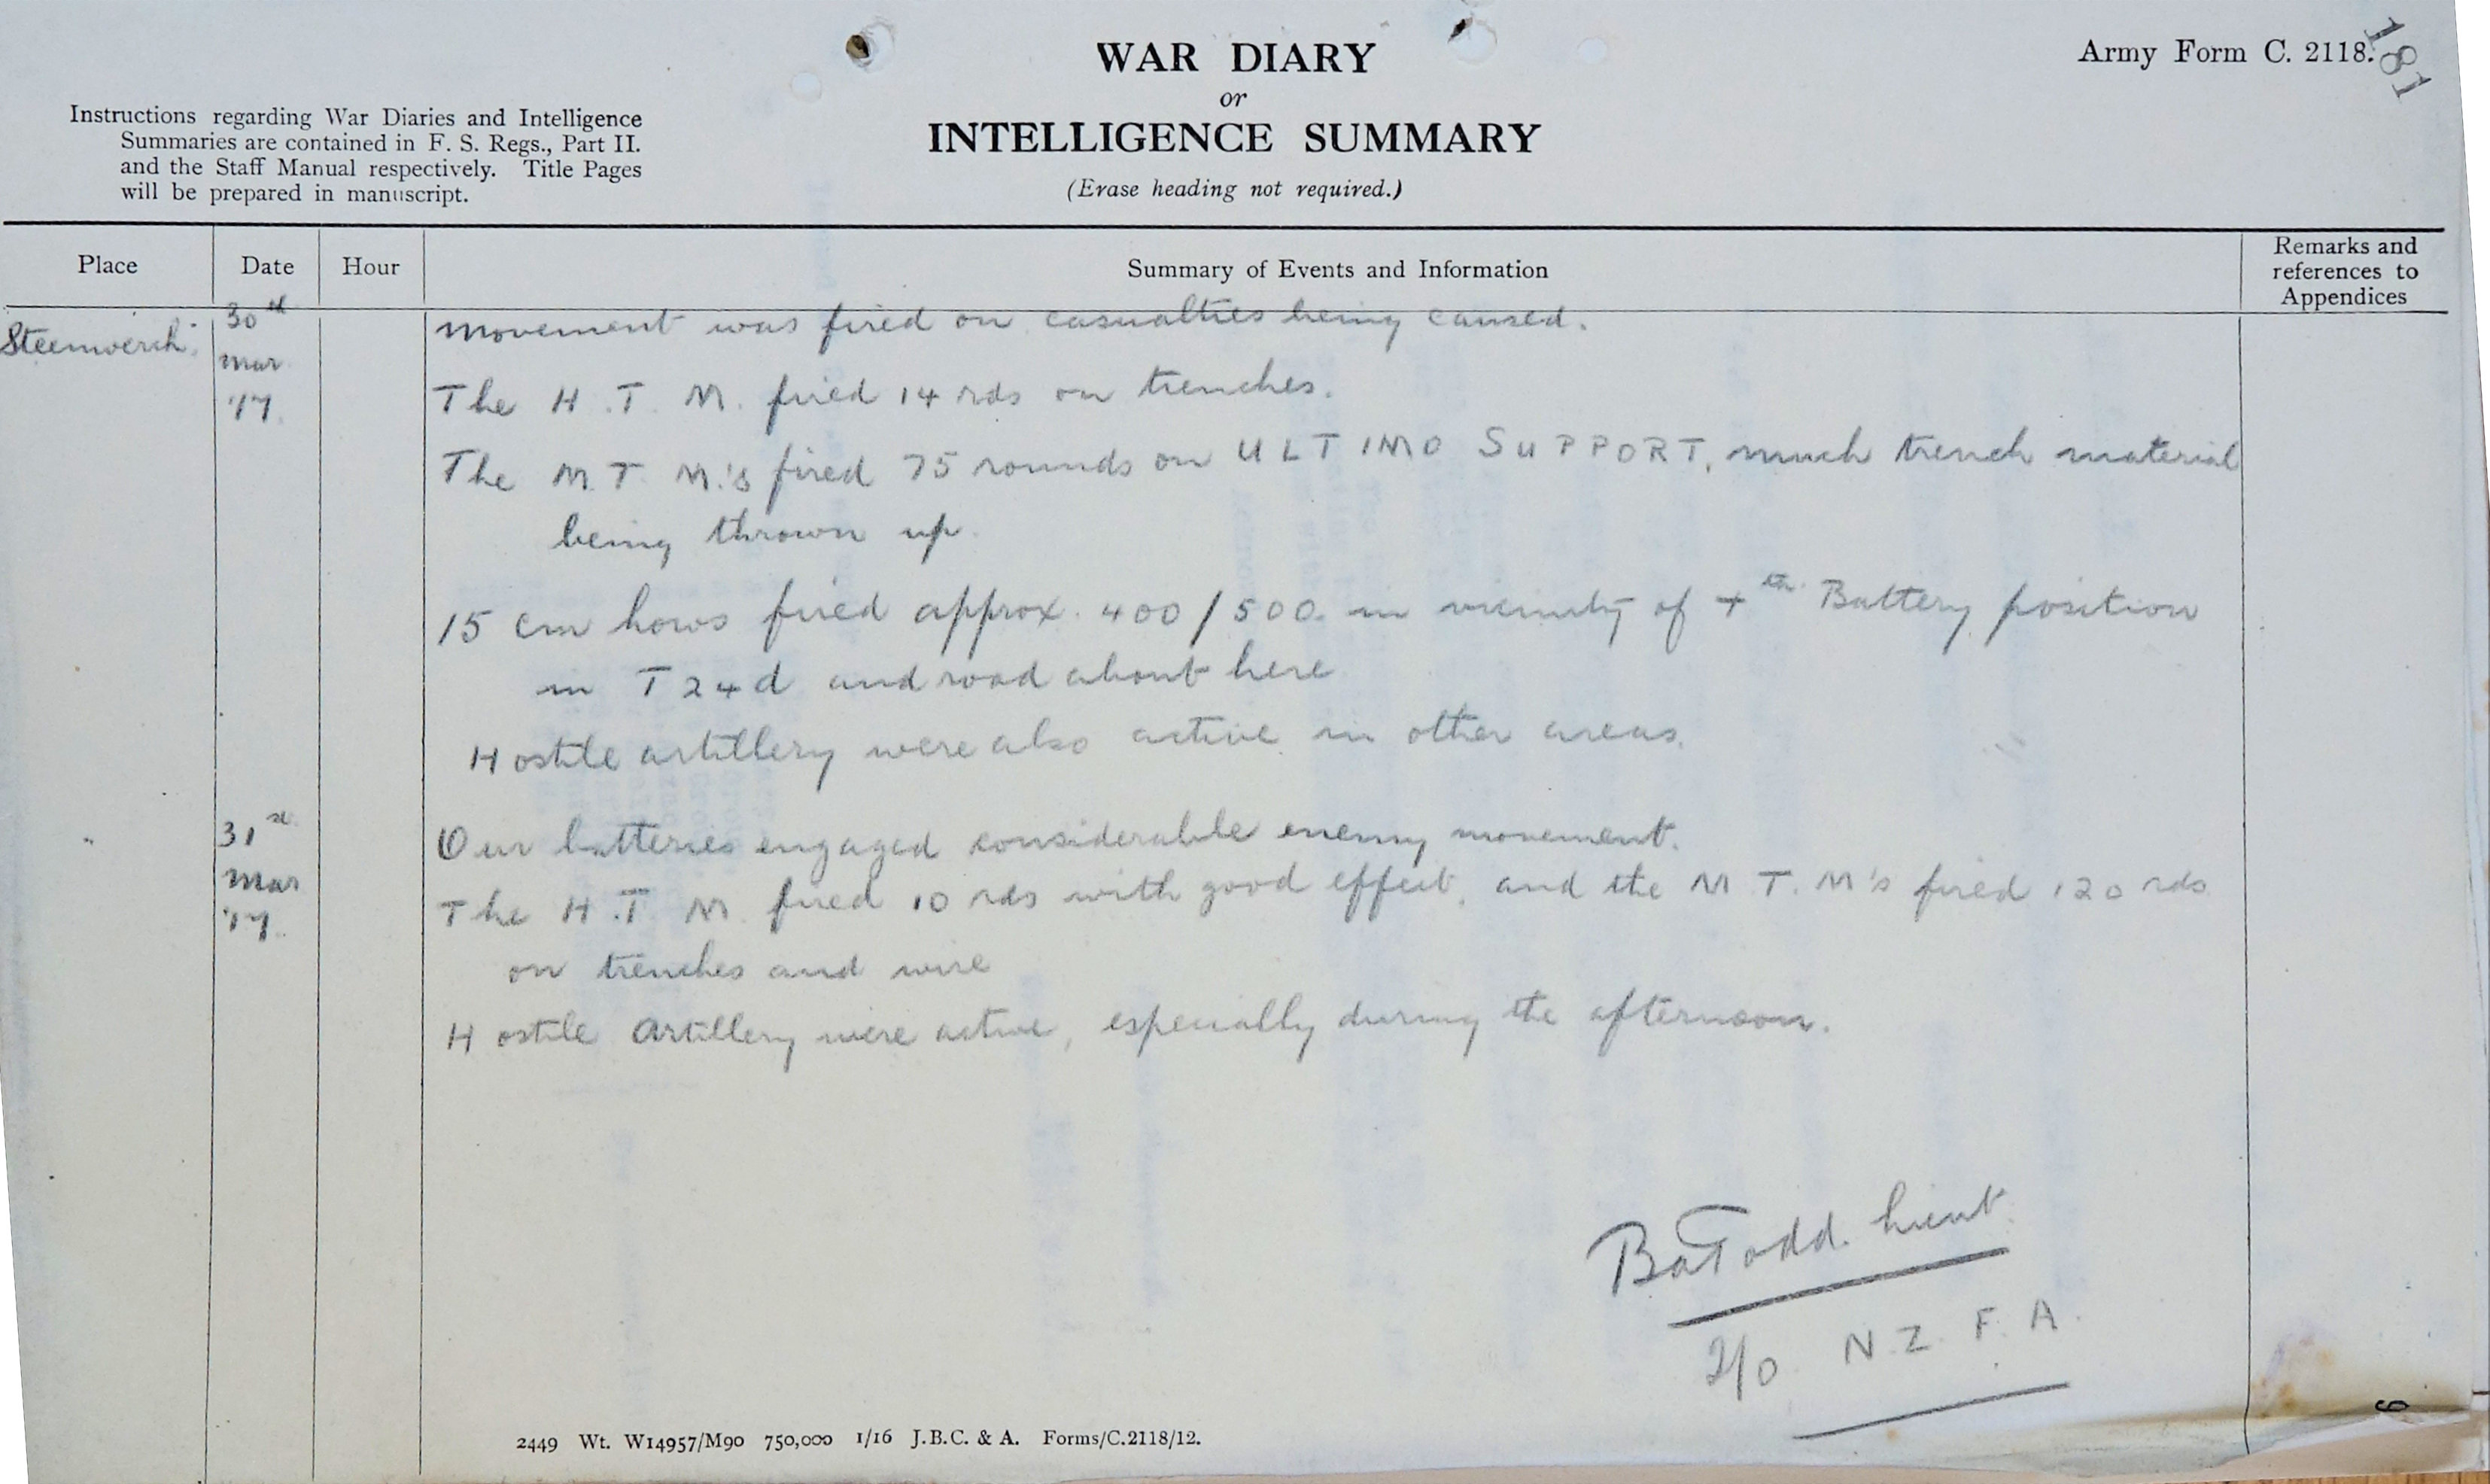 WAR DIARY
or
INTELLIGENCE SUMMARY
(Erase heading not required.)
Army Form C. 2118.
181
Instructions regarding War Diaries and Intelligence
Summaries are contained in F. S. Regs., Part II.
and the Staff Manual respectively. Title Pages
will be prepared in manuscript.
Place Date Hour Summary of Events and Information Remarks and references to Appendices
Steenwerck. 30th Mar '17. movement was fired on casualties being caused.
The H.T.M. fired 14 rds on trenches.
The M.T.M.'s fired 75 rounds on ULTIMO SUPPORT, much trench material
being thrown up.
15 cm hows fired approx. 400/500. in vicinity of Battery position
in T24d and road about here
Hostile artillery were also active in other areas.
" 31st Mar '17. Our batteries engaged considerable enemy movement.
The H.T.M. fired 10 rds with good effect, and the M.T.M's fired 120 rds
on trenches and wire
Hostile Artillery were active, especially during the afternoon.
BaTodd. Lieut.
N.Z.F.A.
2449 Wt. W14957/M90 750,000 1/16 J.B.C. & A. Forms/C.2118/12.